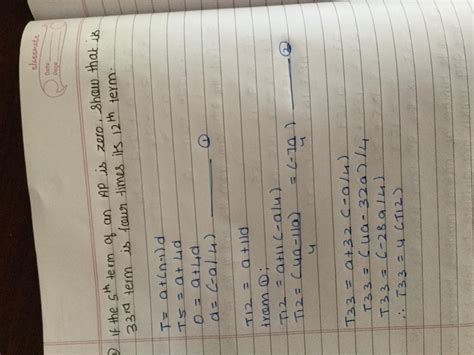 classmate
Date
Page
If the 5th term of an AP is zero, show that is
33rd term is four times its 12th term.
T = a+(n-1)d
T5 = a+4d
0 = a+4d
d = (-a/4) ——— ①
T12 = a+11d
from ①:
T12 = a+11(-a/4)
T12 = (4a-11a)/4 = (-7a)/4 ——— ②
T33 = a+32(-a/4)
T33 = (4a-32a)/4
T33 = (-28a/4)
∴ T33 = 4(T12)